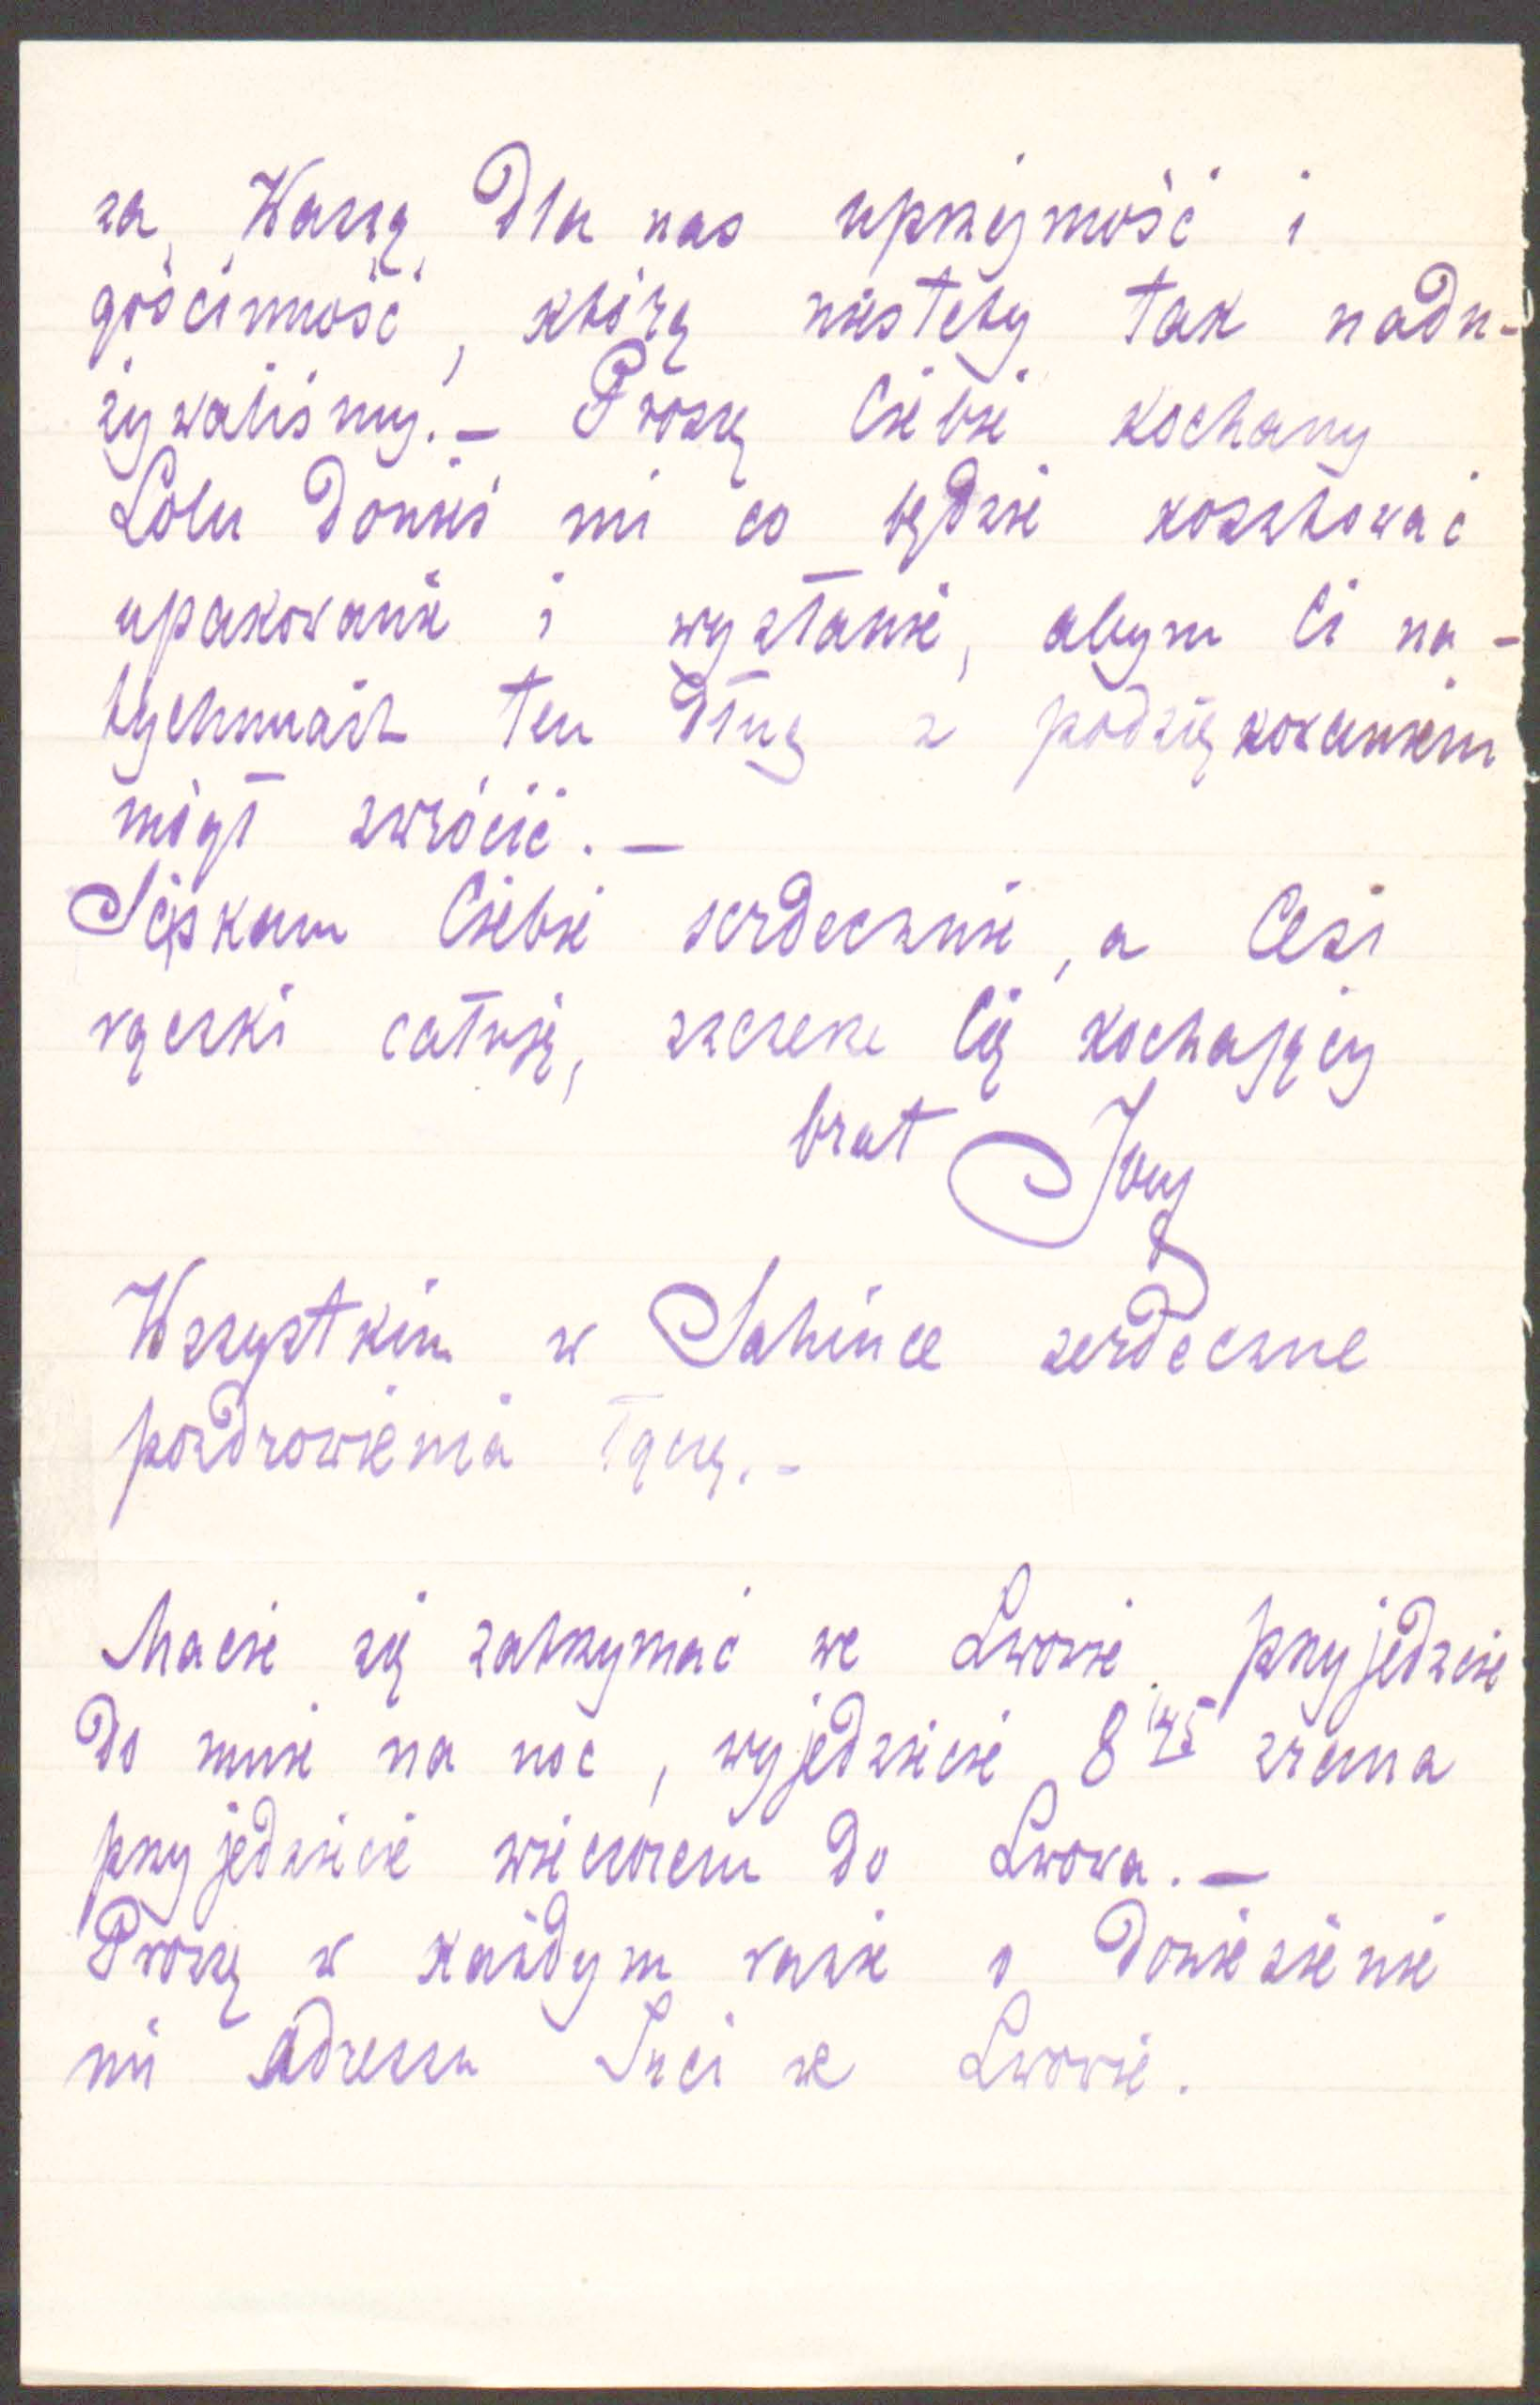 za Waszą dla nas uprzejmość i
gościnność, którą niestety tak nadu-
żywaliśmy. — Proszę Ciebie kochany
Lolu donieś mi co będzie kosztować
upakowanie i wysłanie, abym Ci na-
tychmiast ten dług z podziękowaniem
mógł zwrócić. —
Ściskam Ciebie serdecznie, a Cesi
rączki całuję, szczerze Cię kochający
brat
Wszystkim w serdeczne
pozdrowienia łączę. -
Macie się zatrzymać we Lwowie przyjedzcie
do mnie na noc, wyjedziecie 8 45 zrana
przyjedziecie wieczorem do Lwowa. —
Proszę w każdym razie o doniesienie
mi adressu we Lwowie.